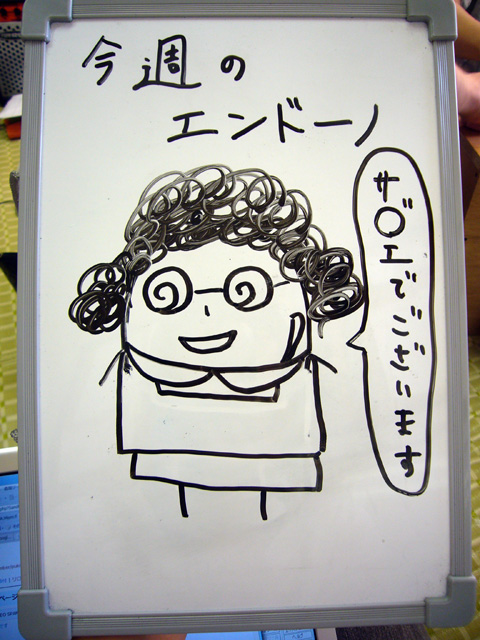 今週の
エンドーノ
サ〇エでございます